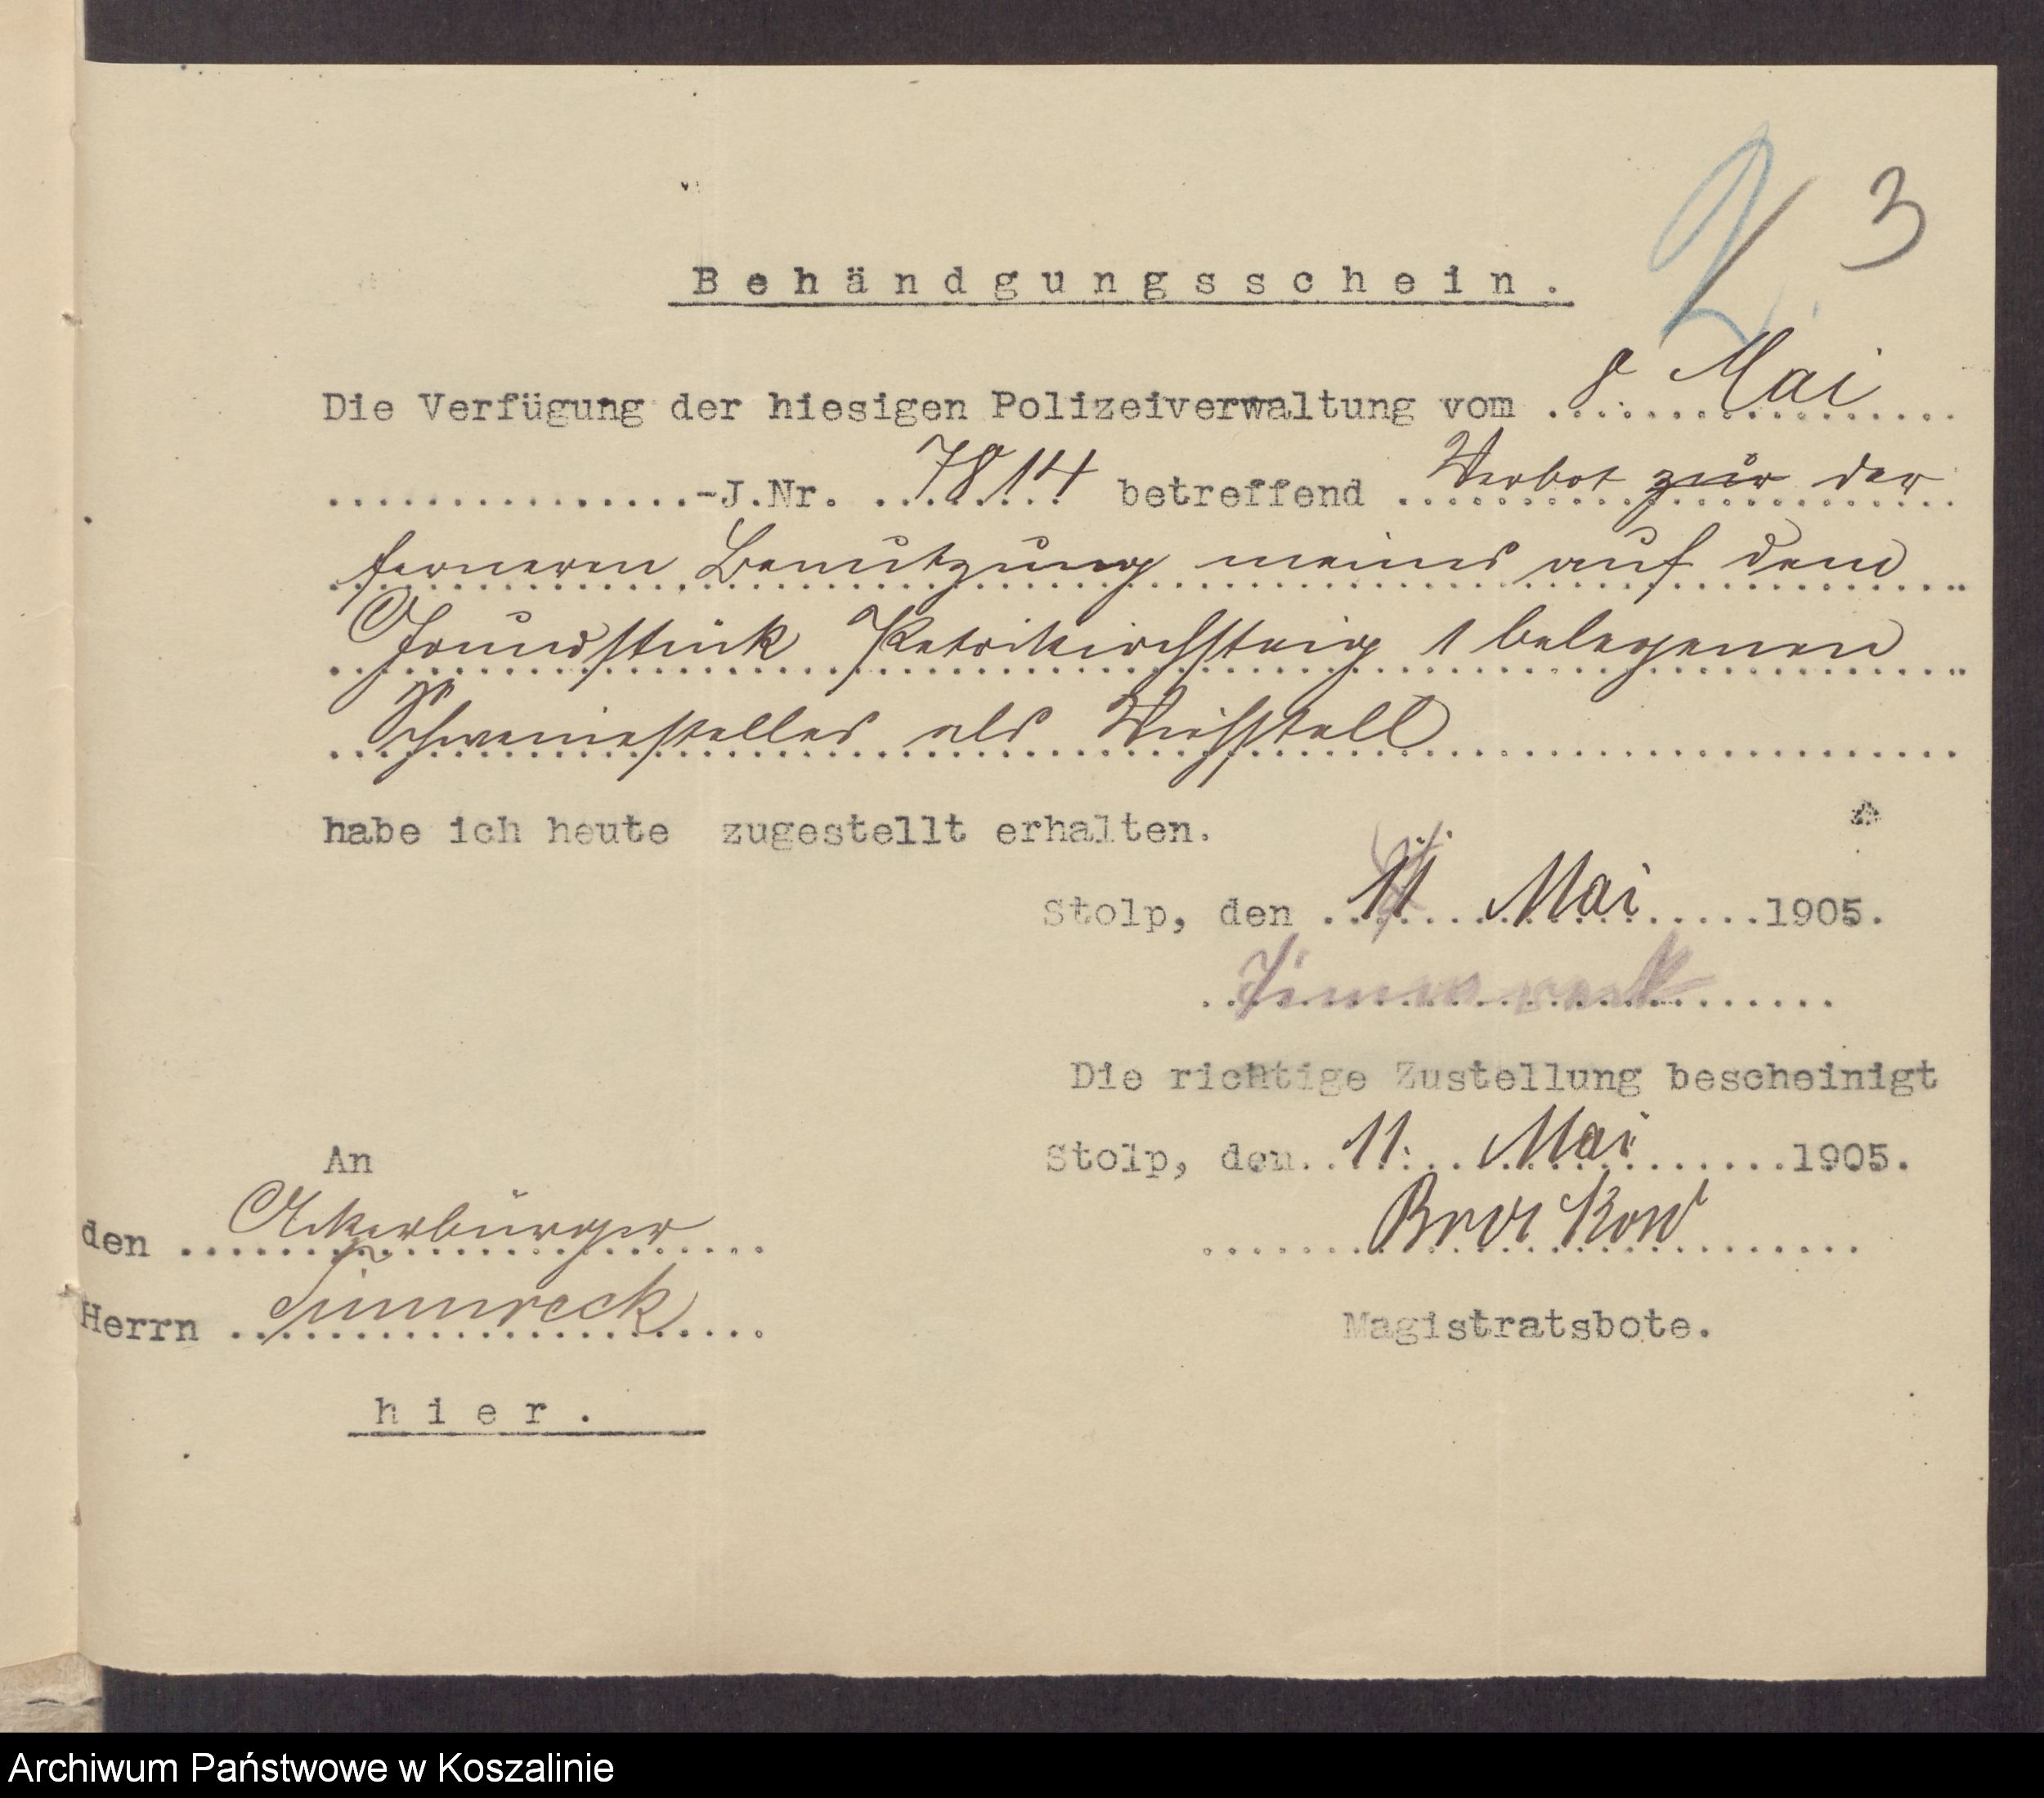 2 3
Behändgungsschein.
Die Verfügung der hiesigen Polizeiverwaltung vom 8 Mai
-J.Nr. 7814 betreffend Verbot zur der
ferneren Benutzung meines auf dem
Grundstück Petrikirchsteig 1 belegenen
Schweinestalles als Viehstall
habe ich heute zugestellt erhalten.
Stolp, den 11 Mai 1905.
Die richtige Zustellung bescheinigt
Stolp, den 11. Mai 1905.
An
den Ackerbürger
Herrn
Magistratsbote.
hier.
Archiwum Państwowe w Koszalinie